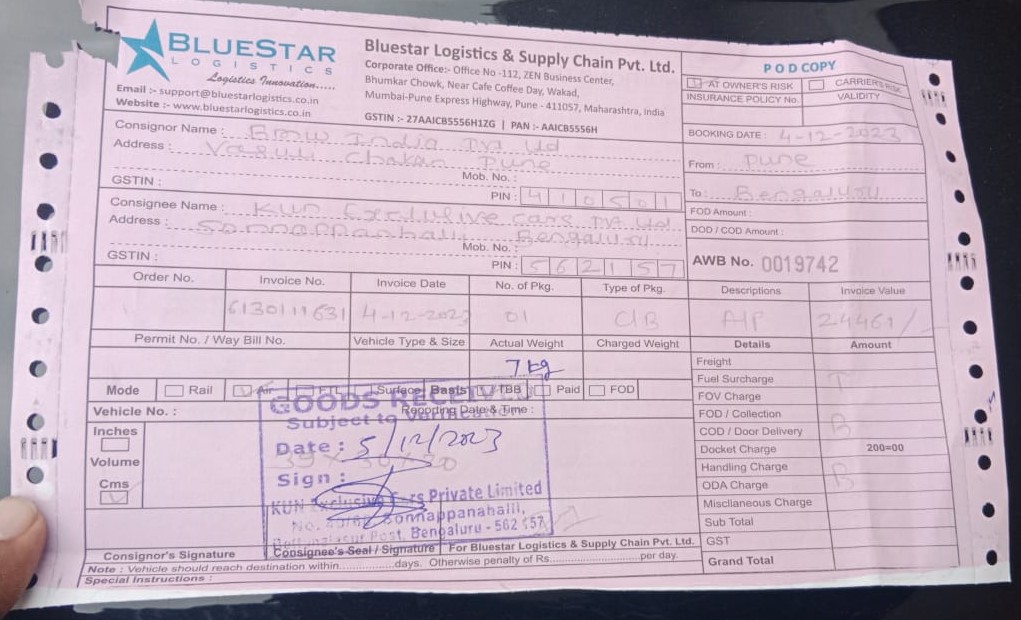 BLUESTAR
LOGISTICS
Logistics Innovation.....
Email :- support@bluestarlogistics.co.in
Website :- www.bluestarlogistics.co.in
Bluestar Logistics & Supply Chain Pvt. Ltd.
Corporate Office:- Office No -112, ZEN Business Center,
Bhumkar Chowk, Near Cafe Coffee Day, Wakad,
Mumbai-Pune Express Highway, Pune - 411057, Maharashtra, India
GSTIN :- 27AAICB5556H1ZG | PAN :- AAICB5556H
POD COPY
AT OWNER'S RISK CARRIER'S RISK
INSURANCE POLICY No. VALIDITY
BOOKING DATE : 4-12-2023
From : Pune
To : Bengaluru
FOD Amount :
DOD / COD Amount :
AWB No. 0019742
Consignor Name : BMW India Pvt Ltd
Address : Chakan Pune
Mob. No. :
GSTIN : PIN : 410501
Consignee Name : KUN Exclusive Cars Pvt Ltd
Address : Sonnappanhalli Bengaluru
Mob. No. :
GSTIN : PIN : 562157
Order No. Invoice No. Invoice Date No. of Pkg. Type of Pkg. Descriptions Invoice Value
6130111631 4-12-2023 01 CIB A/P 24461/-
Permit No. / Way Bill No. Vehicle Type & Size Actual Weight Charged Weight Details Amount
7 kg
Mode Rail Air FTL Surface Basis TBB Paid FOD
Vehicle No. : Reporting Date & Time :
Inches
Volume
Cms
GOODS RECEIVED
Subject to Verification
Date : 5/12/2023
Sign :
KUN Exclusive Cars Private Limited
Sonnappanahalli,
Post, Bengaluru - 562 157
Freight
Fuel Surcharge T
FOV Charge
FOD / Collection B
COD / Door Delivery
Docket Charge 200=00
Handling Charge B
ODA Charge
Miscllaneous Charge
Sub Total
GST
Grand Total
Consignor's Signature Consignee's Seal / Signature For Bluestar Logistics & Supply Chain Pvt. Ltd.
Note : Vehicle should reach destination within..............days. Otherwise penalty of Rs......................per day.
Special Instructions :